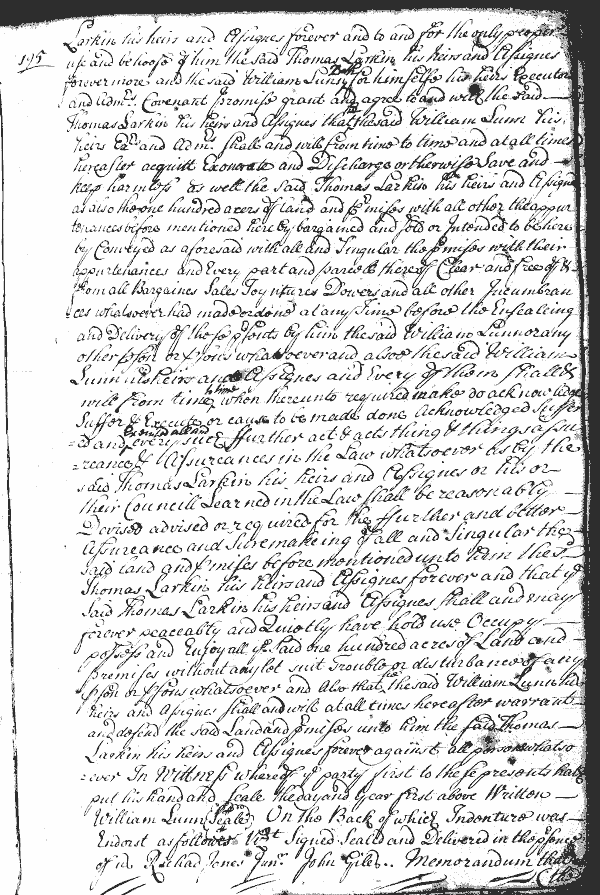 Larkin his heirs and Assignes forever and to and for the only proper
195
use and behoofe of him the said Thomas Larkin his heirs and Assignes
forevermore and the said William Lunn for himselfe his heirs Executors
and Admrs. Covenant promise grant and agree to and with the said
Thomas Larkin his heirs and Assignes that the said William Lunn his
heirs Exrs and Admrs. shall and will from time to time and at all times
hereafter acquitt Exonerate and Discharge or otherwise Save and
keep harmless as well the said Thomas Larkin his heirs and Assignes
as also the one hundred acers of land and p'mises with all other the appur
tenances before mentioned hereby bargained and sold or Intended to be here
by Conveyed as aforesaid with all and Singular the p'mises with their
appurtenances and Every part and parcell thereof Clear and free of &
from all Bargaines Sales Joyntures Dowers and all other Incumbran
ces whatsoever had made or done at any time before the Ensealeing
and Delivery of these p'sents by him the said William Lunn or any
other p'son or p'sons whatsoever and alsoe the said William
Lunn his heirs and Assignes and Every of them shall &
will from time to time when thereunto required make do acknowledge
Suffer & Execute or cause to be made done Acknowledged suffer
=d and Executed all and every such ffurther act & acts thing & things assu
=rances & Assureances in the Law whatsoever as by the
said Thomas Larkin his heirs and Assignes or his or
their Councill Learned in the Law shall be reasonably
Devised advised or required for the ffurther and better
Assureance and Suremakeing of all and Singular the
said land and p'mises before mentioned unto him the sd.
Thomas Larkin his heirs and Assignes forever and that ye
said Thomas Larkin his heirs and Assignes shall and may
forever peaceably and Quietly have hold use Occupy
possess and Enjoy all ye said one hundred acres of Land and
premises without any lot suit trouble or disturbance of any
p'son or p'sons whatsoever and Also that he the said William Lunn his
heirs and Assignes shall and will at all times hereafter warrant
and defend the said Land and p'mises unto him the said Thomas
Larkin his heirs and Assignes forever against all persons whatso
=ever In Wittness whereof ye party first to these presents hath
put his hand and Seale the day and year first above Written
William Lunn Seale On the Back of which Indenture was
Endorst as followes Vizt Signed Sealed and Delivered in the p'sence
of us Richad Jones Junr. John Giles.. Memorandum that